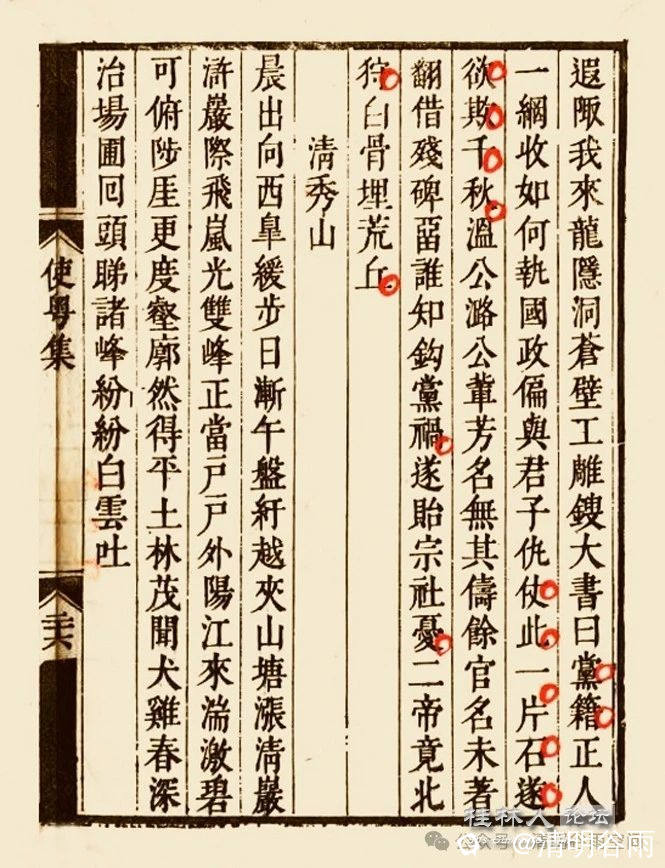 遐陬我來龍隱洞蒼壁工雕鎪大書曰黨籍正人
一網收如何執國政偏與君子仇仗此一片石遂
欲欺千秋溫公潞公輩芳名無其儔餘官名未著
翻借殘碑畱誰知鈎黨禍遂貽宗社憂二帝竟北
狩白骨埋荒丘
清秀山
晨出向西臯緩步日漸午盤紆越夾山塘漲清巖
滸巖際飛嵐光雙峰正當戶戶外陽江來湍激碧
可俯陟厓更度壑廓然得平土林茂聞犬雞春深
治場圃囘頭睇諸峰紛紛白雲吐
使粵集
桂林人论坛
公众号
清明谷雨